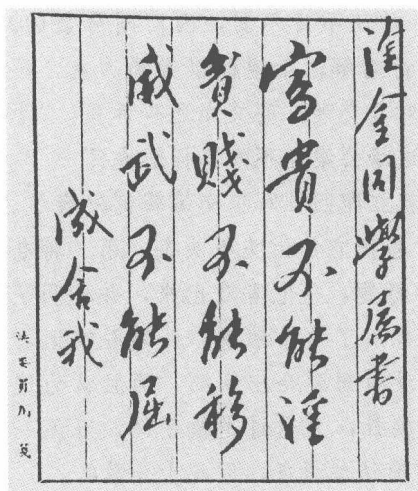 淮金同學屬書
富貴不能淫
貧賤不能移
威武不能屈
成舍我